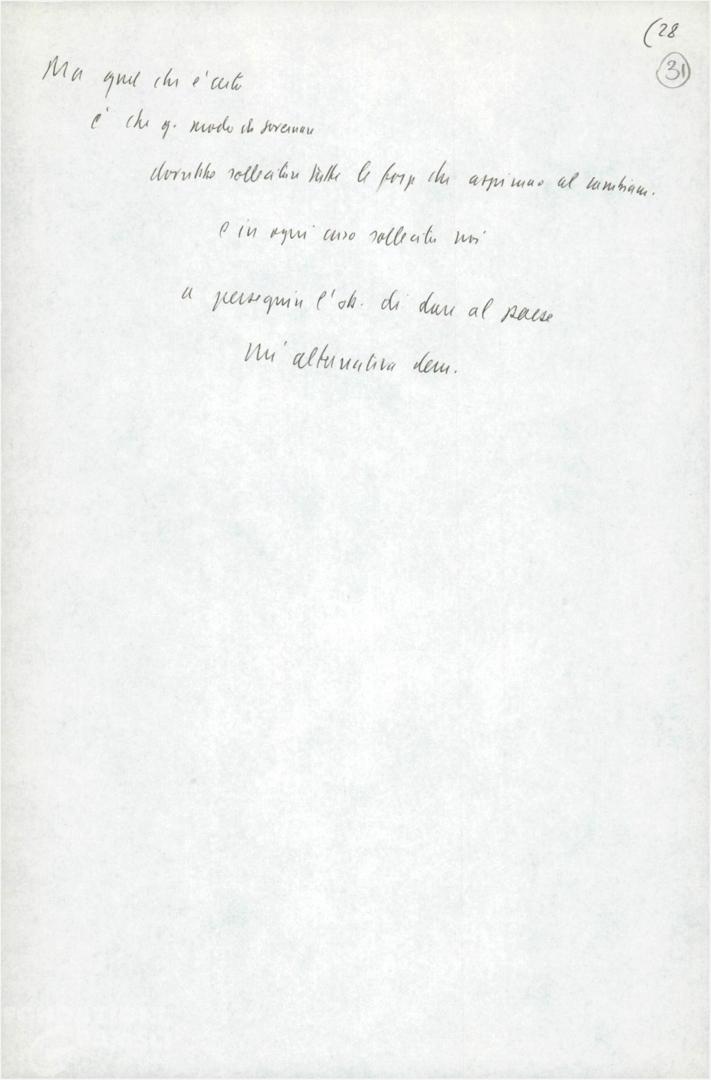 (28
31
Ma quel che è certo
è che q. modo di governare
dovrebbe sollecitare tutte le forze che aspirano al cambiam.
e in ogni caso sollecita noi
a perseguire l'ob. di dare al paese
un'alternativa dem.